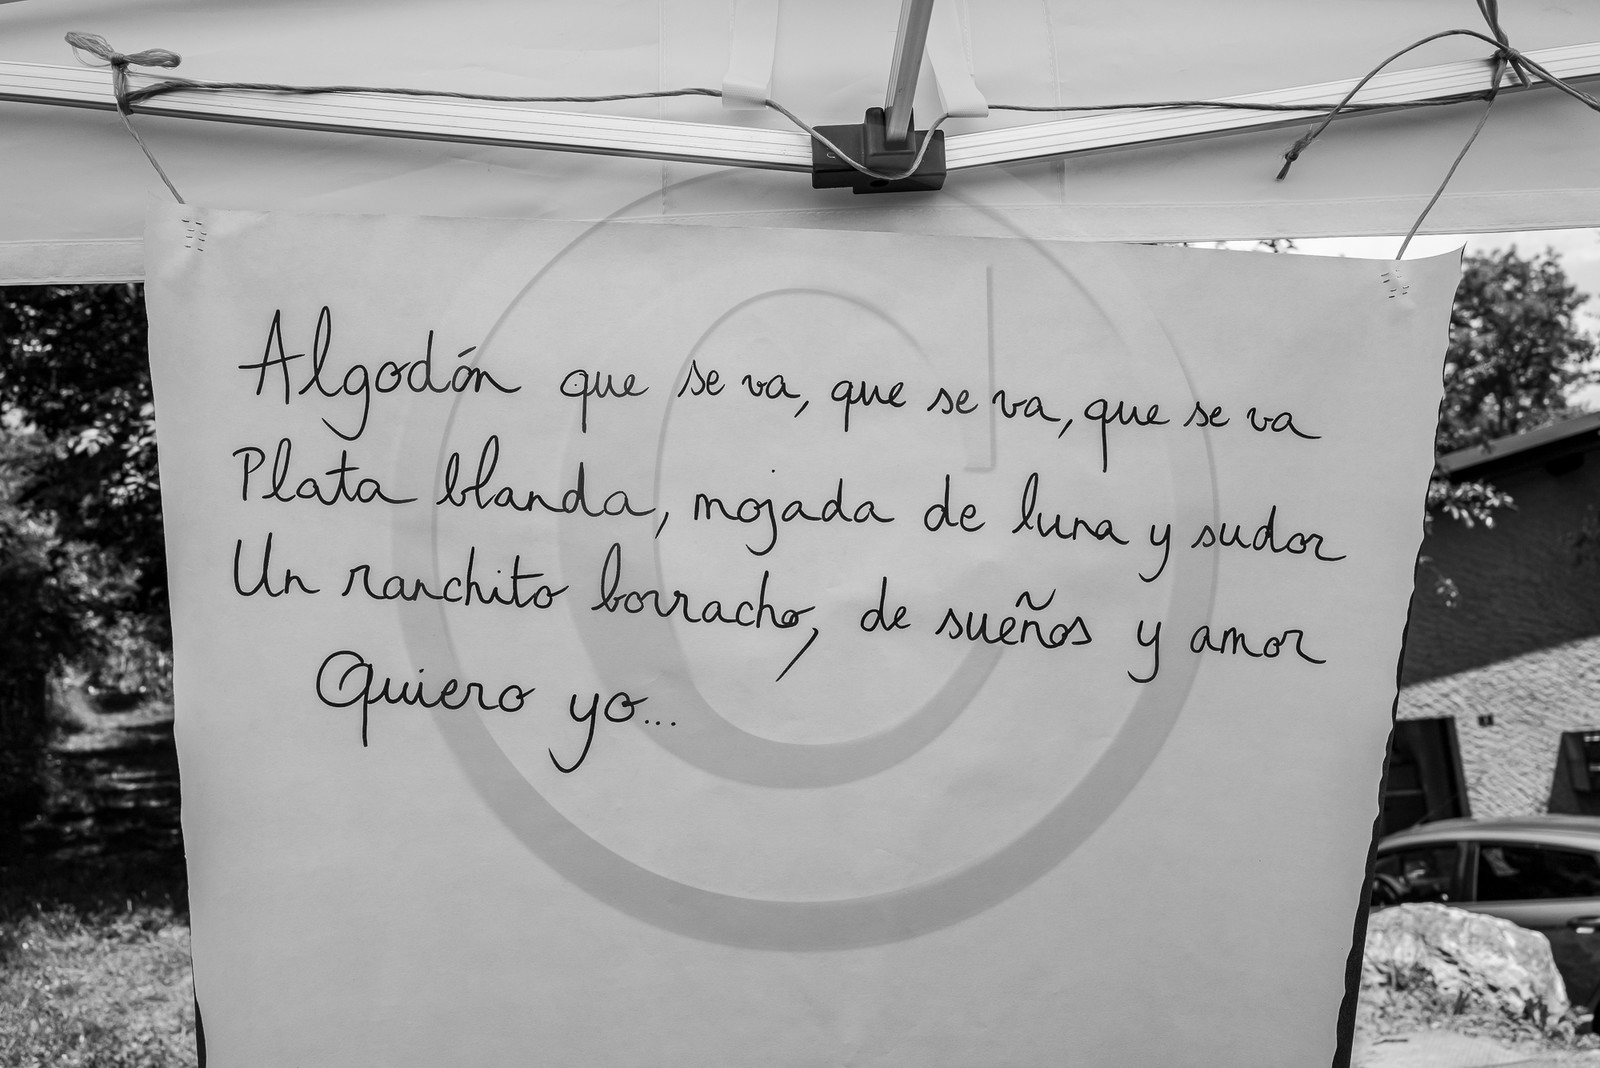 Algodón que se va, que se va, que se va
Plata blanda, mojada de luna y sudor
Un ranchito borracho, de sueños y amor
Quiero yo...